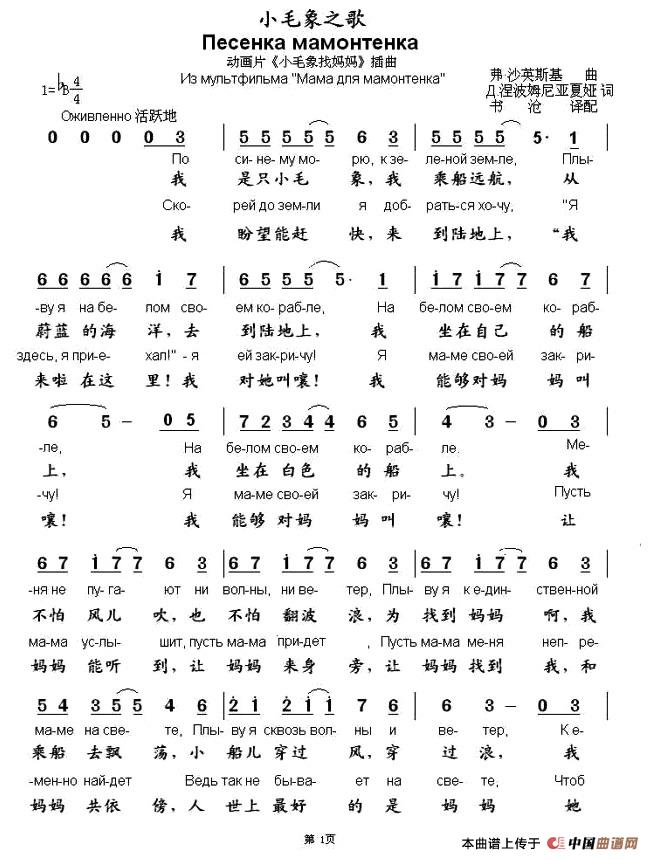 小毛象之歌
Песенка мамонтенка
动画片《小毛象找妈妈》插曲
Из мультфильма "Мама для мамонтенка"
弗·沙英斯基 曲
Д.涅波姆尼亚夏娅 词
书 沧 译配
1=♭B 4/4
Оживленно 活跃地
0 0 0 0 3 | 5 5 5 5 5 6 3 | 5 5 5 5 5 5· 1
По си-не-му мо-рю, к зе-ле-ной зем-ле, Плы-
我 是只小毛 象，我 乘船远航， 从
Ско-рей до зем-ли я доб-рать-ся хо-чу, "Я
我 盼望能赶 快，来 到陆地上， “我
6 6 6 6 6 i 7 | 6 5 5 5 5 5· 1 | i 7 i 7 i 7 6 7
-ву я на бе-лом сво-ем ко-раб-ле, На бе-лом своем ко-раб-
蔚蓝 的海 洋，去 到陆地上， 我 坐在自己 的船
здесь, я при-е-хал!" - я ей за-кри-чу! Я ма-ме сво-ей зак-ри-
来啦 在这 里！我 对她叫嚷！ 我 能够对妈 妈叫
6 5 – 0 5 | 7 2 3 4 4 6 5 | 4 3 – 0 3
-ле, На бе-лом сво-ем ко-раб-ле. Ме-
上， 我 坐在 白色 的船 上。 我
-чу! Я ма-ме сво-ей зак-ри-чу! Пусть
嚷！ 我 能够 对妈 妈叫 嚷！ 让
6 7 i 7 7 6 3 | 6 7 i 7 7 6 3 | 6 7 i 7 7 6 3
-ня не пу-га-ют ни вол-ны, ни ве-тер, Плы-ву я к е-дин-ствен-ной
不怕 风儿 吹，也 不怕 翻波 浪，为 找到 妈妈 啊，我
ма-ма ус-лы-шит, пусть ма-ма при-дет , Пусть ма-ма ме-ня неп-ре-
妈妈 能听 到，让 妈妈 来身 旁，让 妈妈 找到 我，和
5 4 3 5 5 4 6 | 2 i 2 i i 7 6 | 6 3 – 0 3
ма-ме на све-те, Плы-ву я сквозь вол-ны и ве-тер, К е-
乘船 去飘 荡，小 船儿 穿过 风，穿 过 浪， 我
-мен-но най-дет Ведь так не бы-ва-ет на све-те, Чтоб
妈妈 共依 傍，人 世上 最好 的是 妈妈 她
第 1页
本曲谱上传于 中国曲谱网